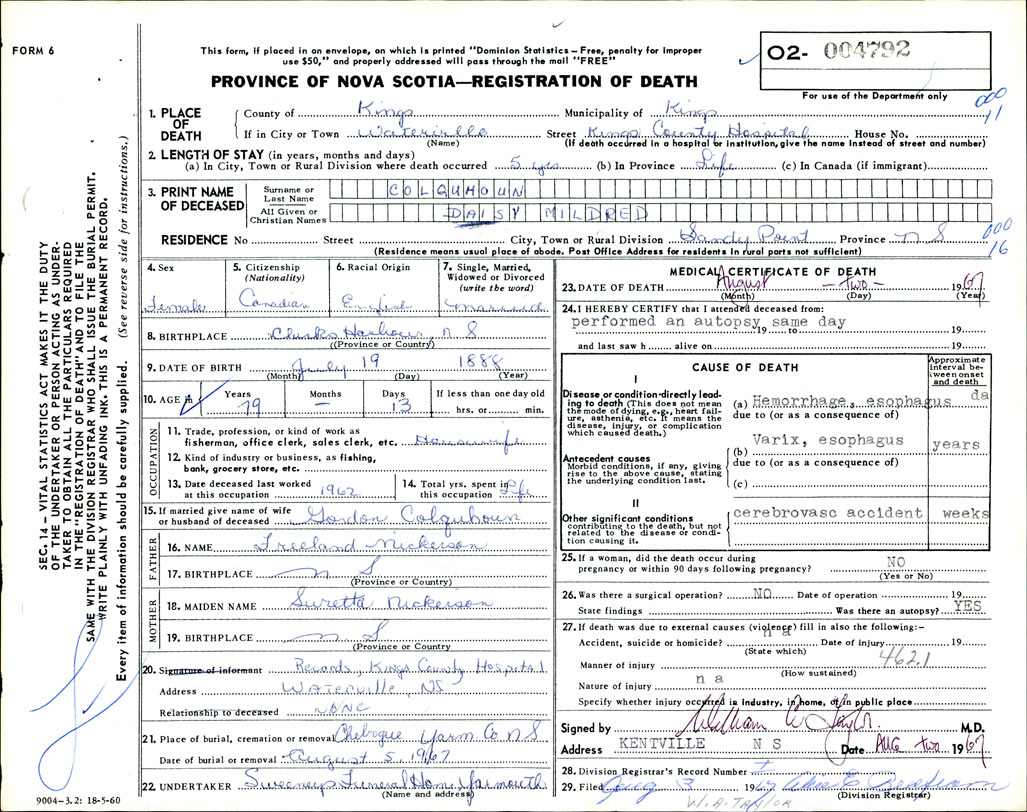 FORM 6
This form, if placed in an envelope, on which is printed "Dominion Statistics – Free, penalty for improper
use $50," and properly addressed will pass through the mail "FREE"
PROVINCE OF NOVA SCOTIA—REGISTRATION OF DEATH
02- 004792
For use of the Department only
000
11
1. PLACE OF DEATH
County of Kings Municipality of Kings
If in City or Town Waterville Street Kings County Hospital House No.
(Name) (If death occurred in a hospital or institution, give the name instead of street and number)
2. LENGTH OF STAY (in years, months and days)
(a) In City, Town or Rural Division where death occurred 5 yrs (b) In Province Life (c) In Canada (if immigrant)
3. PRINT NAME OF DECEASED
Surname or Last Name COLQUHOUN
All Given or Christian Names DAISY MILDRED
RESIDENCE No Street City, Town or Rural Division Sandy Point Province N S
000
16
(Residence means usual place of abode. Post Office Address for residents in rural parts not sufficient)
4. Sex
Female
5. Citizenship
(Nationality)
Canadian
6. Racial Origin
English
7. Single, Married, Widowed or Divorced
(write the word)
Married
8. BIRTHPLACE Clarks Harbour, N S
(Province or Country)
9. DATE OF BIRTH July 19 1888
(Month) (Day) (Year)
10. AGE in
Years Months Days If less than one day old
79 – 13 hrs. or min.
OCCUPATION
11. Trade, profession, or kind of work as
fisherman, office clerk, sales clerk, etc. Housewife
12. Kind of industry or business, as fishing,
bank, grocery store, etc.
13. Date deceased last worked
at this occupation 1962
14. Total yrs. spent in
this occupation Life
15. If married give name of wife
or husband of deceased Gordon Colquhoun
FATHER
16. NAME Freeland Nickerson
17. BIRTHPLACE N S
(Province or Country)
MOTHER
18. MAIDEN NAME Suretta Nickerson
19. BIRTHPLACE N S
(Province or Country)
20. Signature of informant Records, Kings County Hospital
Address Waterville, NS
Relationship to deceased NONE
21. Place of burial, cremation or removal Chebogue Yarm Co N S
Date of burial or removal August 5, 1967
22. UNDERTAKER Sweeney Funeral Home Yarmouth
(Name and address)
MEDICAL CERTIFICATE OF DEATH
23. DATE OF DEATH August – two – 1967
(Month) (Day) (Year)
24. I HEREBY CERTIFY that I attended deceased from:
performed an autopsy same day
19 to 19
and last saw h alive on 19
CAUSE OF DEATH
Approximate interval between onset and death
I
Disease or condition directly leading to death (This does not mean the mode of dying, e.g., heart failure, asthenia, etc. It means the disease, injury, or complication which caused death.)
(a) Hemorrhage, esophagus da
due to (or as a consequence of)
Antecedent causes
Morbid conditions, if any, giving rise to the above cause, stating the underlying condition last.
(b) Varix, esophagus years
due to (or as a consequence of)
(c)
II
Other significant conditions
contributing to the death, but not related to the disease or condition causing it.
cerebrovasc accident weeks
25. If a woman, did the death occur during
pregnancy or within 90 days following pregnancy? NO
(Yes or No)
26. Was there a surgical operation? NO Date of operation 19
State findings Was there an autopsy? YES
27. If death was due to external causes (violence) fill in also the following:–
n a
Accident, suicide or homicide? Date of injury 19
(State which)
462.1
Manner of injury
(How sustained)
n a
Nature of injury
Specify whether injury occurred in industry, in home, or in public place
Signed by William W Taylor M.D.
Address KENTVILLE N S Date Aug two 1967
28. Division Registrar's Record Number
29. Filed Aug 3 1967
(Division Registrar)
W.A. TAYLOR
SEC. 14 – VITAL STATISTICS ACT MAKES IT THE DUTY
OF THE UNDERTAKER OR PERSON ACTING AS UNDER-
TAKER TO OBTAIN ALL THE PARTICULARS REQUIRED
IN THE "REGISTRATION OF DEATH" AND TO FILE THE
SAME WITH THE DIVISION REGISTRAR WHO SHALL ISSUE THE BURIAL PERMIT.
WRITE PLAINLY WITH UNFADING INK. THIS IS A PERMANENT RECORD.
Every item of information should be carefully supplied. (See reverse side for instructions.)
9004-3.2: 18-5-60